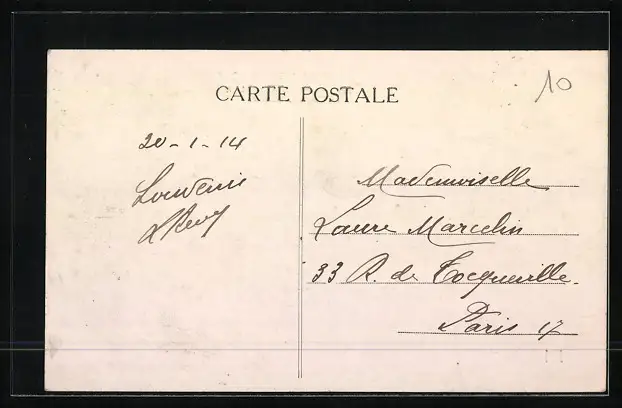 CARTE POSTALE
10
20-1-14
Souvenir
Mademoiselle
Laure Marcelin
33 R. de Tocqueville.
Paris 17